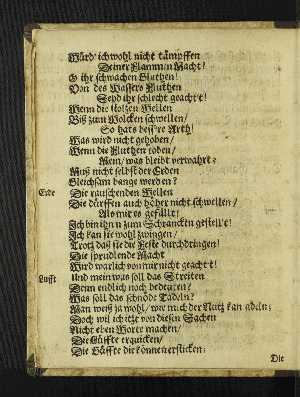 Würd' ich wohl nicht tämpffen
Deiner Flammen Macht?
O ihr schwachen Gluthen!
Von des Wassers Fluthen
Seyd ihr schlecht geacht't!
Wenn die stoltzen Wellen
Biß zum Wolcken schwellen/
So hats bessre Arth!
Was wird nicht gehoben/
Wenn die Fluthen toben/
Mein/ was bleibt verwahrt?
Erde Muß nicht selbst der Erden
Gleichsam bange werden?
Die rauschenden Wellen
Die dürffen auch höher nicht schwellen/
Als mir es gefällt!
Ich bin ihn'n zum Schrancken gestellt!
Ich kan sie wohl zwingen/
Trotz daß sie die Feste durchdringen!
Die sprudlende Macht
Wird warlich von mir nicht geacht't!
Lufft Und mein was soll das Streiten
Denn endlich noch bedeuten?
Was soll das schnöde Tadeln?
Man weiß ja wohl/ wie mich der Nutz kan adeln;
Doch wil ich itzt von diesen Sachen
Nicht eben Worte machen/
Die Lüffte erquicken/
Die Lüffte die können ersticken;
Die